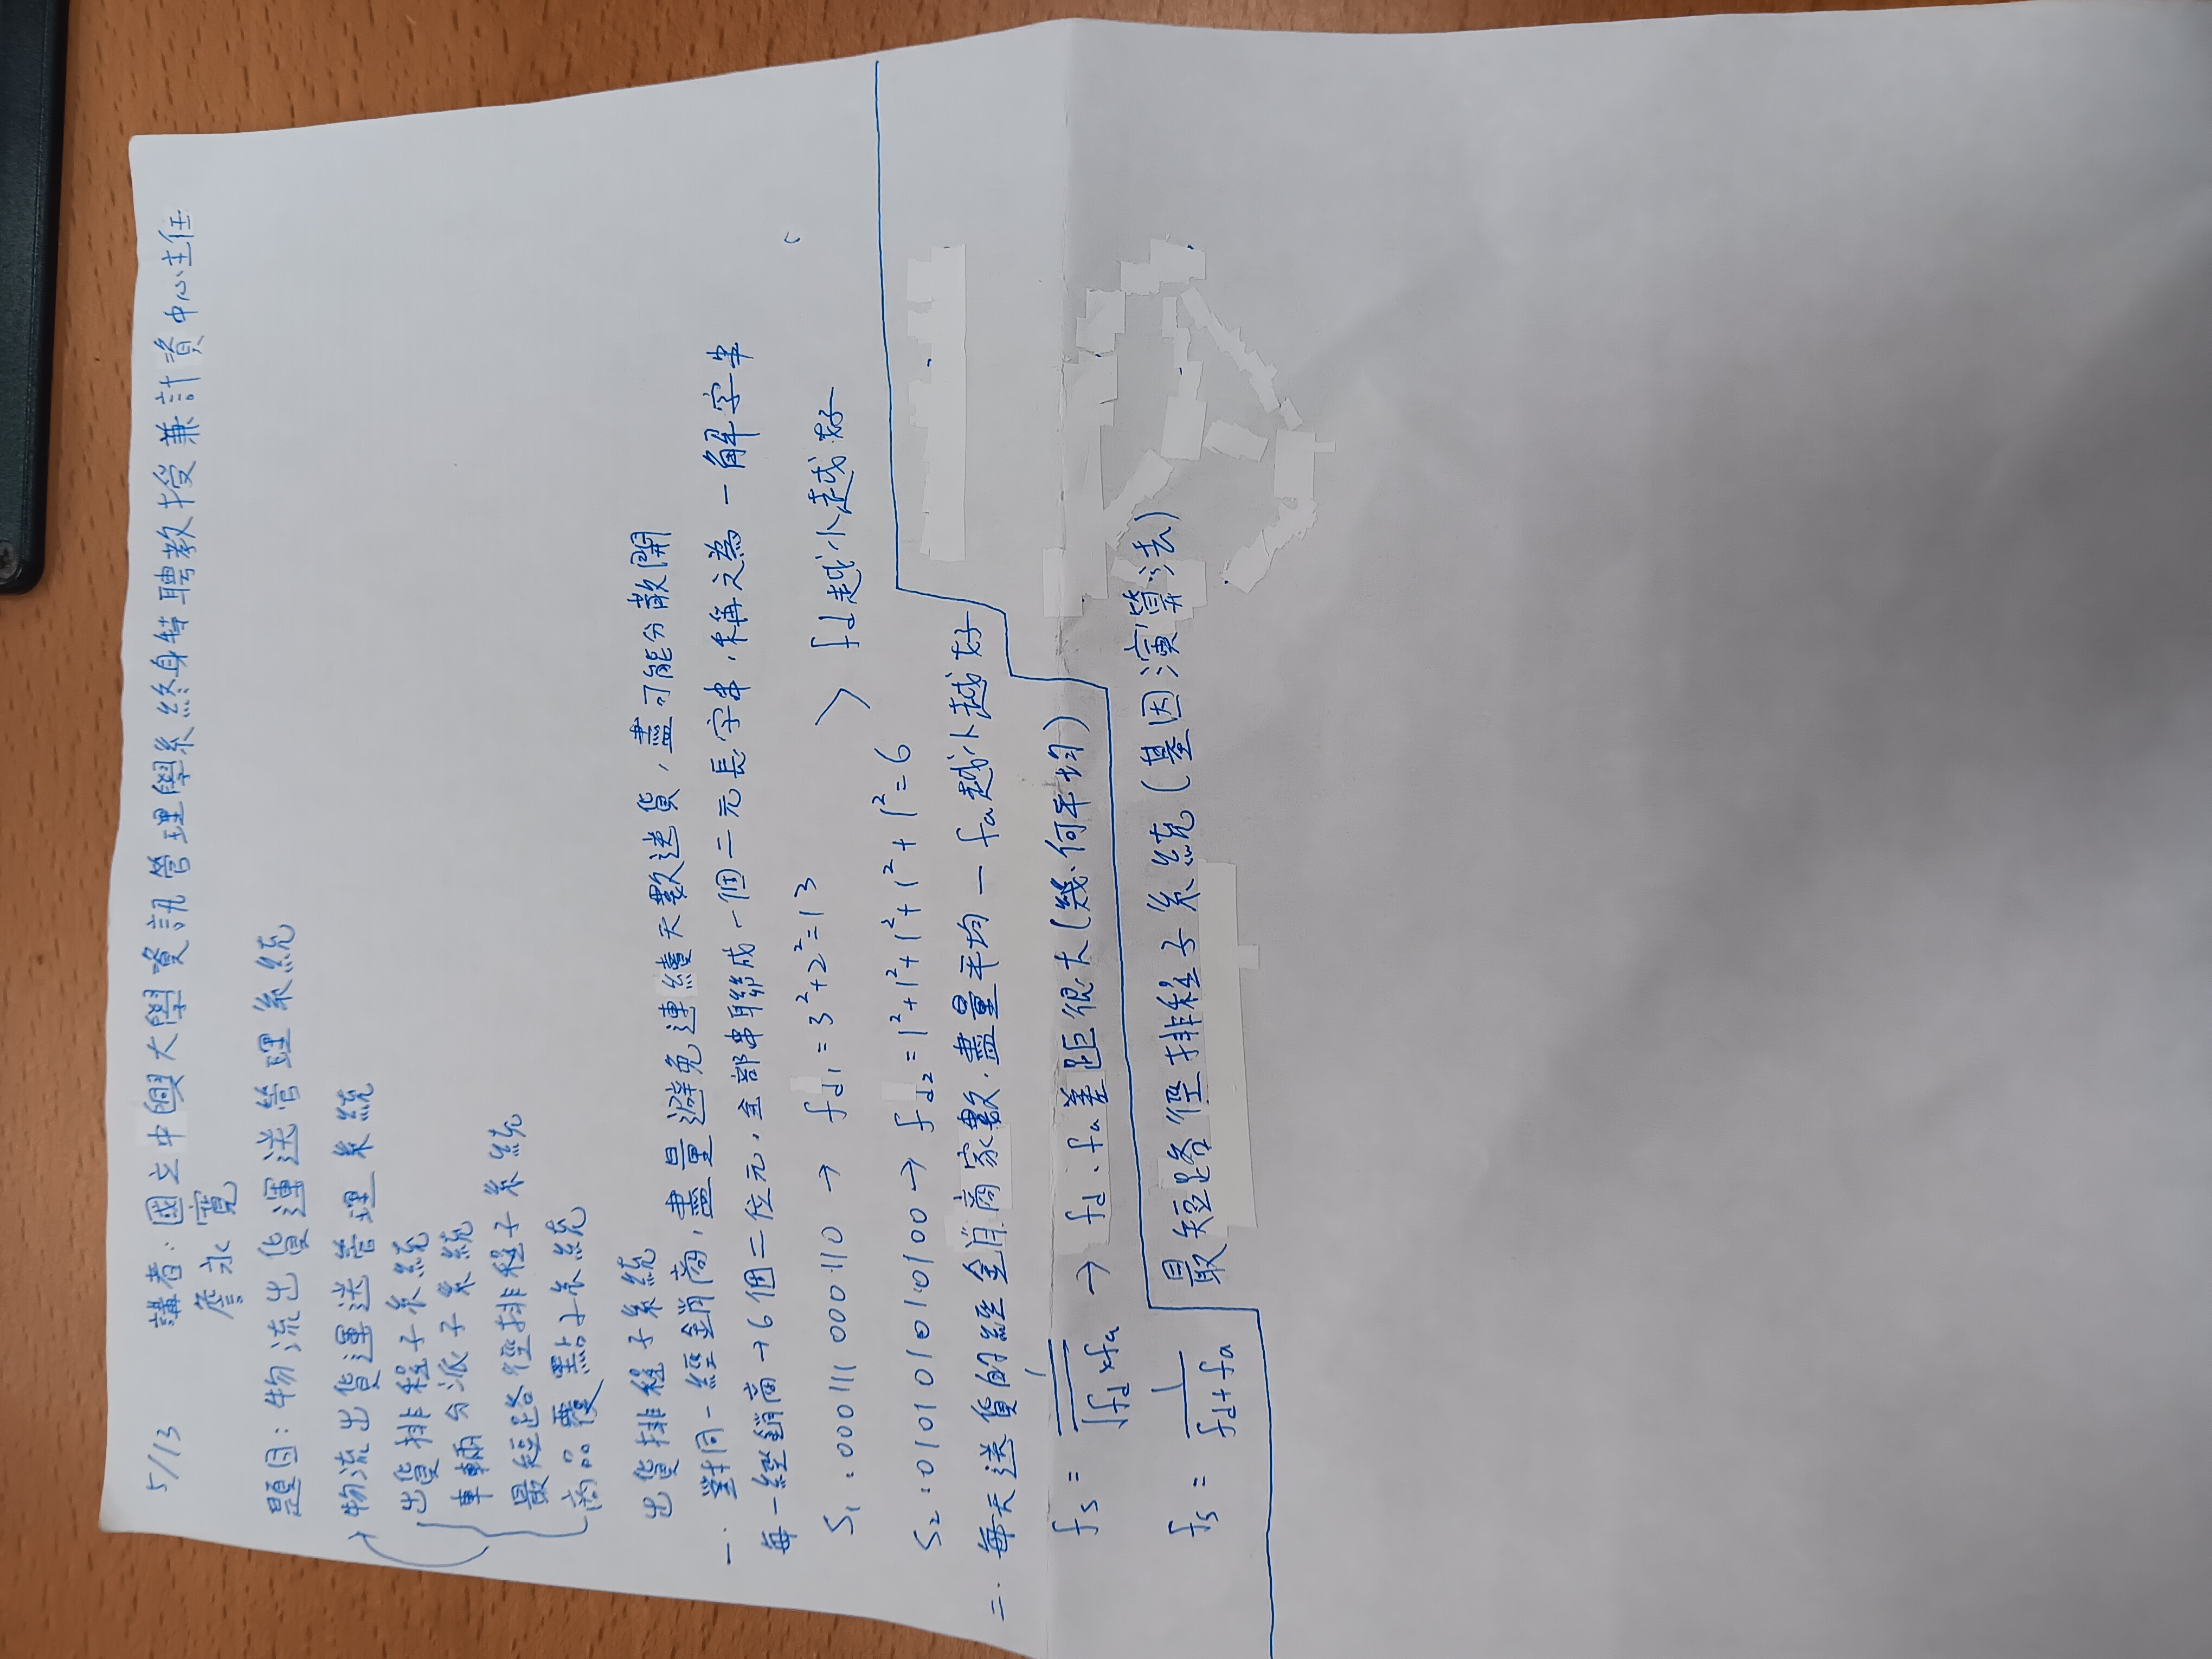 5/13 講者:國立中興大學資訊管理學系終身特聘教授兼計資中心主任
詹永寬
題目:物流出貨運送管理系統
物流出貨運送管理系統
出貨排程子系統
車輛分派子系統
最短路徑排程子系統
商品覆點子系統
出貨排程子系統
一. 對同一經銷商,盡量避免連續天數送貨,盡可能分散開
每一經銷商→6個二位元,全部串聯成一個二元長字串,稱之為一解字串
S₁:000111 000110 → fd₁ = 3²+2² = 13
S₂:010101010100 → fd₂ = 1²+1²+1²+1²+1² = 6
> fd越小越好
二. 每天送貨的經銷商家數,盡量平均 — fa越小越好
fs = 1/√(fd×fa) → fd、fa差距很大(幾何平均)
fs = 1/(fd+fa)
最短路徑排程子系統(基因演算法)